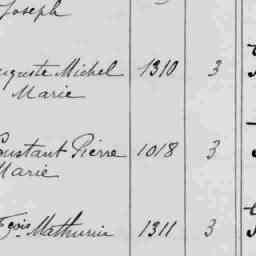 Joseph
uguste Michel 1310 3
Marie
onstant Pierre 1018 3
Marie
çois Mathurin 1311 3